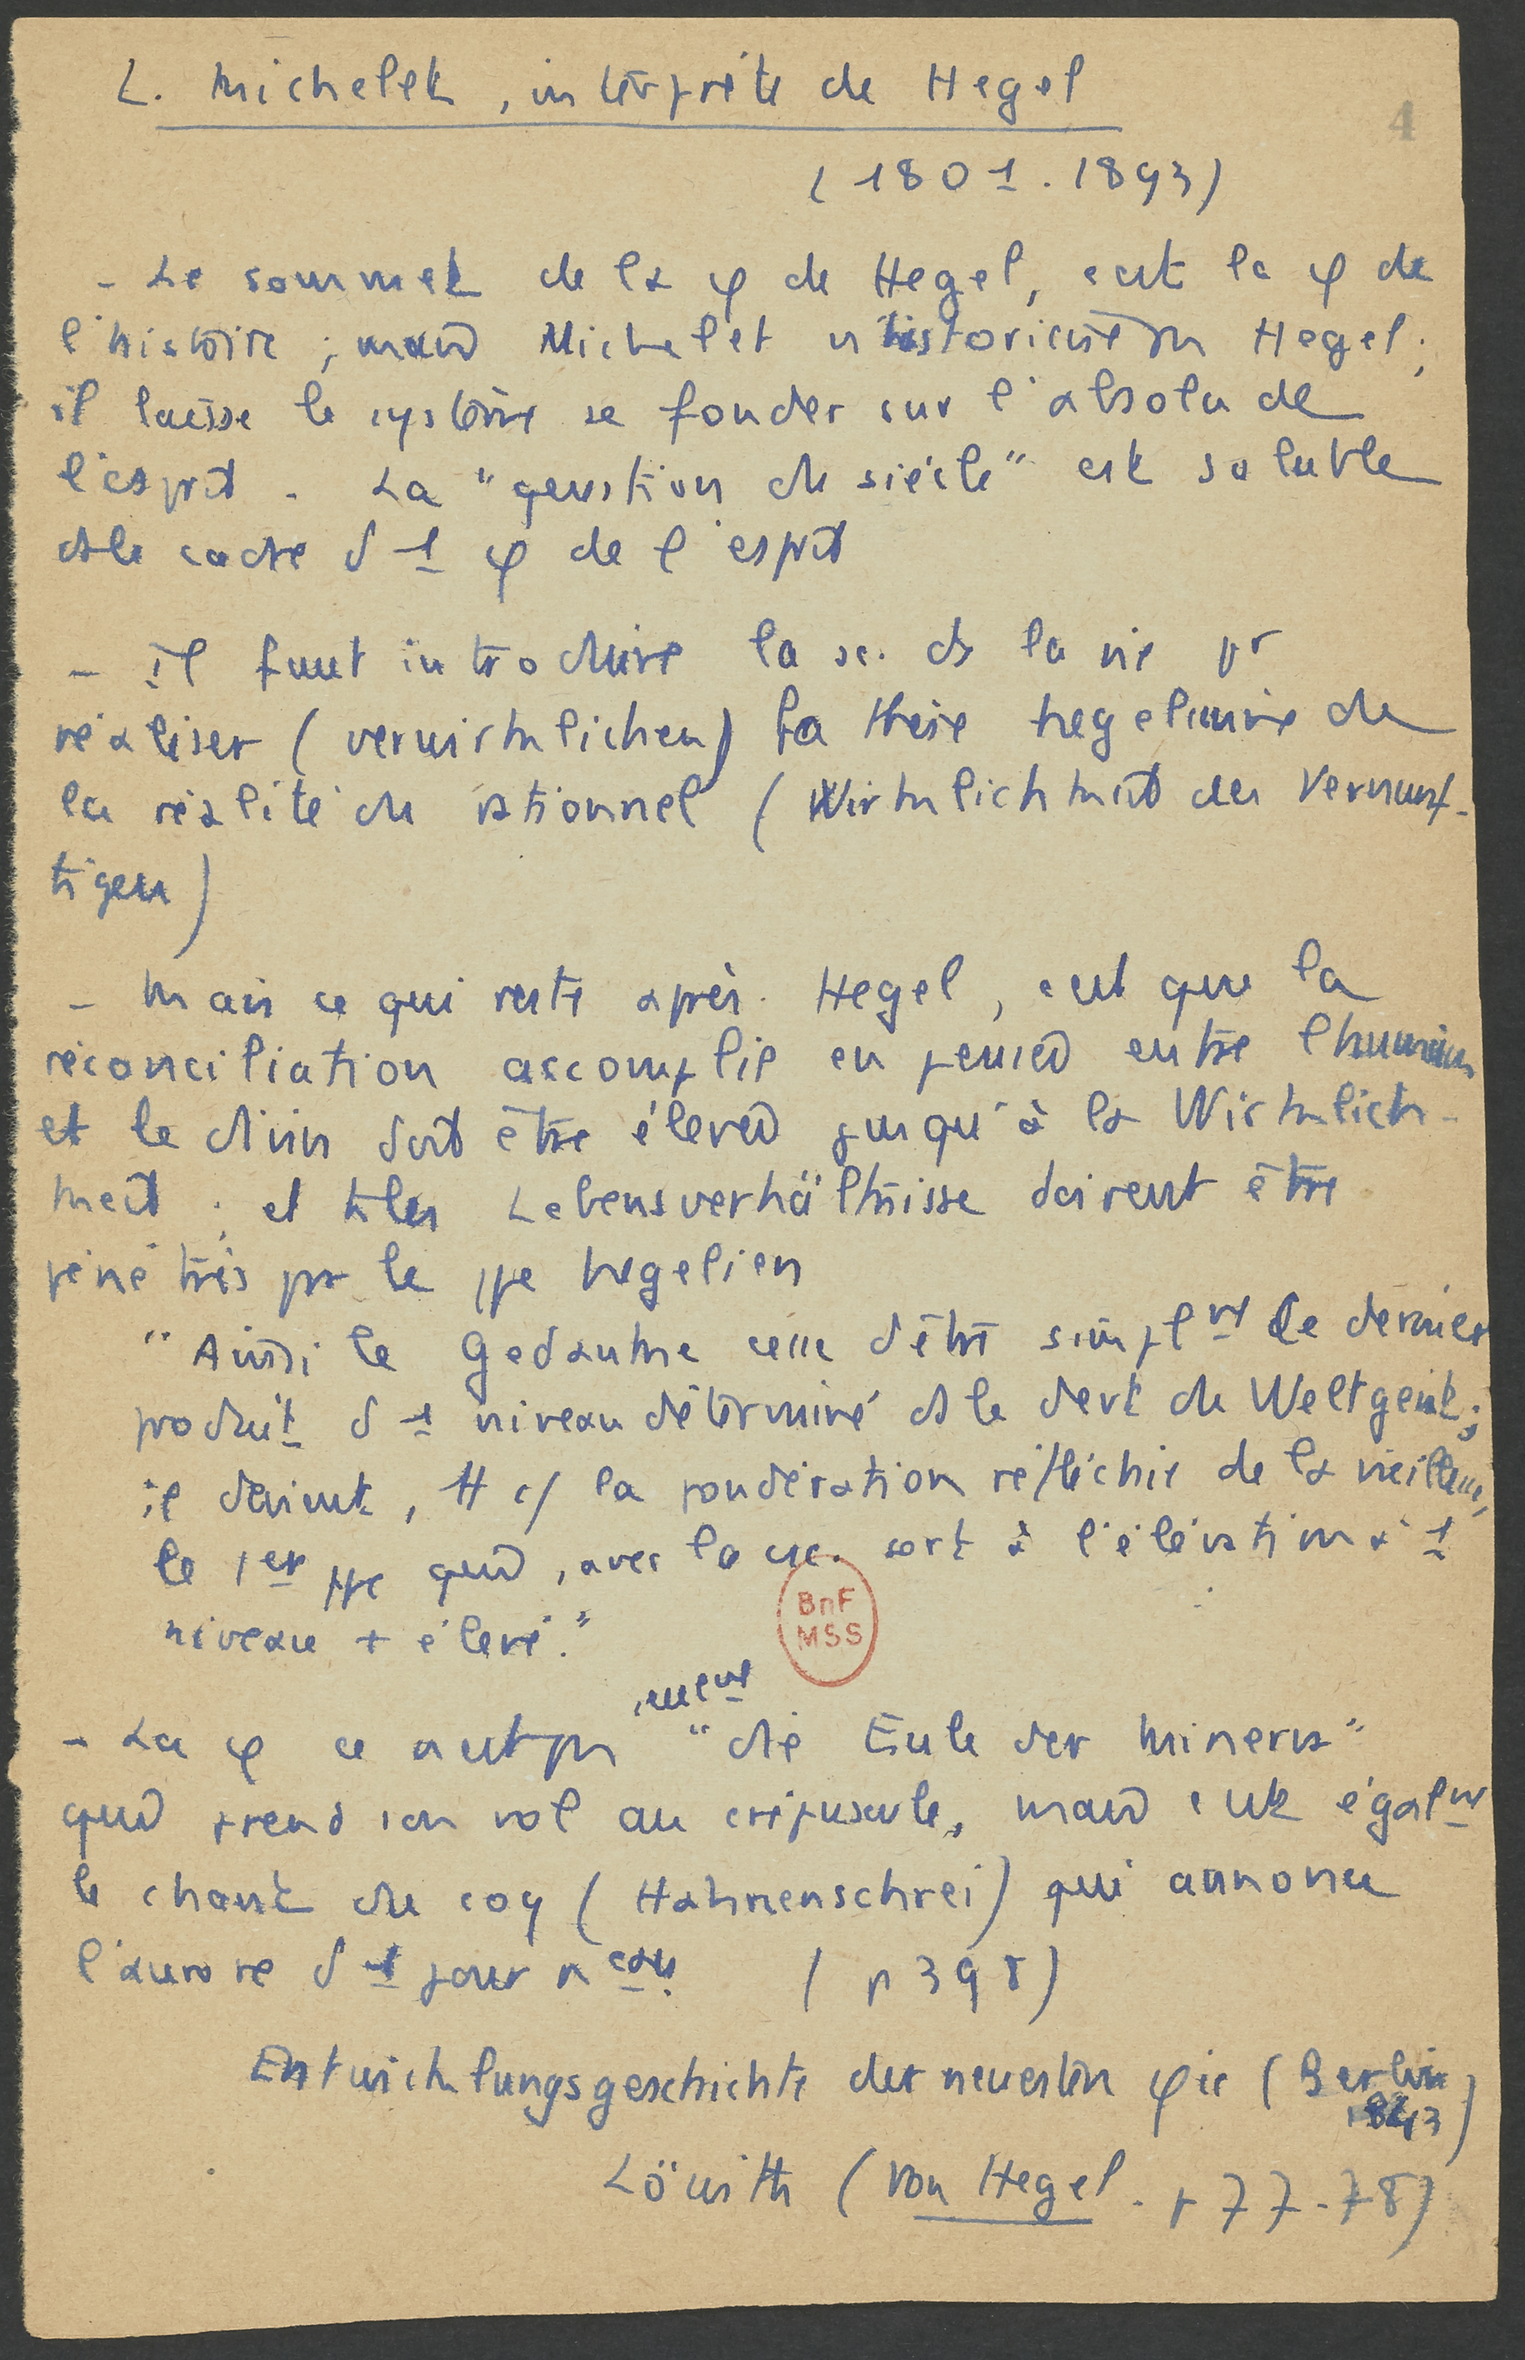 L. Michelet, interprète de Hegel
4
(1801.1893)
- Le sommet de la φ de Hegel, c'est la φ de
l'histoire ; mais Michelet n'historicise pas Hegel ;
il laisse le système se fonder sur l'absolu de
l'esprit. La "question du siècle" est soluble
ds le cadre d'1 φ de l'esprit
- Il faut introduire la sc. ds la vie pr
réaliser (verwirklichen) la thèse hegelienne de
la réalité du rationnel (Wirklichkeit des Vernunf-
tigen)
- Mais ce qui reste après Hegel, c'est que la
réconciliation accomplie en pensée entre l'humain
et le divin doit être élevée jusqu'à la Wirklich-
keit ; et ts les Lebensverhältnisse doivent être
pénétrés par le ppe hegelien
"Ainsi le Gedanke cesse d'être simplnt le dernier
produit d'1 niveau déterminé ds le devt du Weltgeist ;
il devient, tt c/ la pondération réfléchie de la vieillesse,
le 1er ppe qui, avec la csc. sert à l'élévation à 1
niveau + élevé."
BnF
MSS
seulnt
- La φ ce n'est pas "die Eule der Minerva"
qui prend son vol au crépuscule, mais c'est égalnt
le chant du coq (Hahnenschrei) qui annonce
l'aurore d'1 jour neau. (p 398)
Entwicklungsgeschichte der neuesten φie (Berlin
1843)
Löwith (Von Hegel. p 77-78)